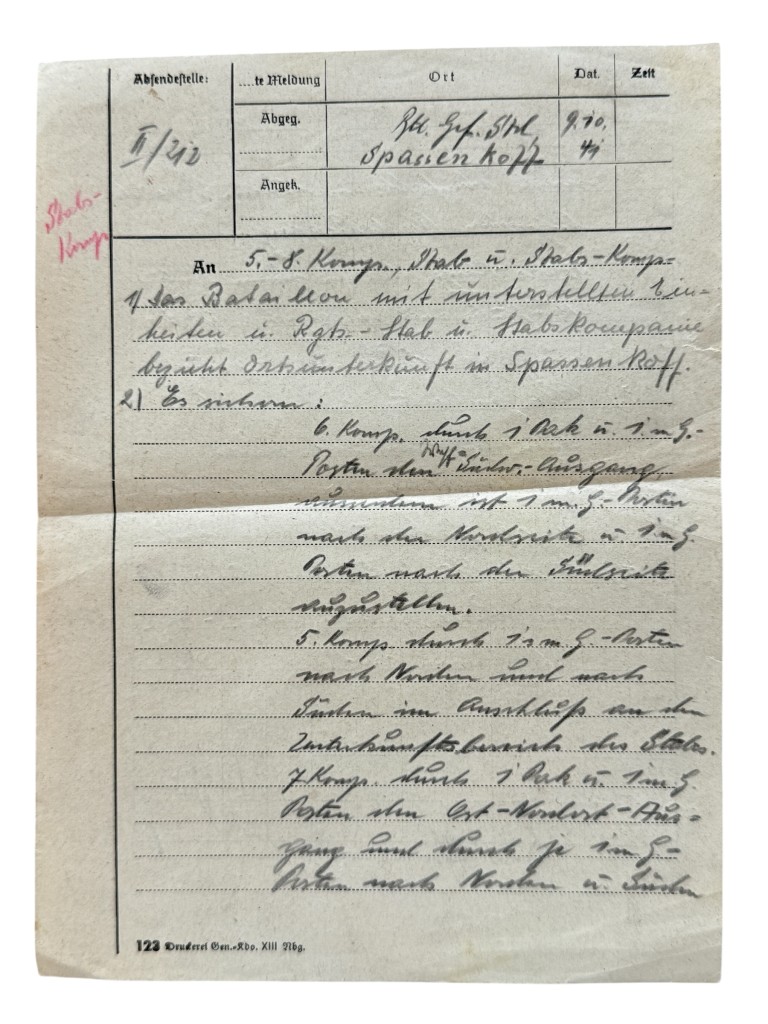 Absendestelle:
....te Meldung
Ort
Dat.
Zeit
II/212
Abgeg.
Btl. Gef. Std.
Spassenkoff
9.10.
41
Angek.
Stabs-
Komp
An 5.-8. Komp., Stab u. Stabs-Komp=
1) Das Bataillon mit unterstellten Ein-
heiten u. Rgts.-Stab u. Stabskompanie
bezieht Ortsunterkunft in Spassenkoff.
2) Es sichern:
6. Komp. durch 1 Pak u. 1 m.G.-
Posten den Südw.-Ausgang
ausserdem ist 1 m.G.-Posten
nach der Nordseite u. 1 m.G.
Posten nach der Südseite
auszustellen.
5. Komp durch 1 s m.G.-Posten
nach Norden und nach
Süden im Anschluß an den
Unterkunftsbereich des Stabes.
7 Komp. durch 1 Pak u. 1 m.G.
Posten den Ost-Nordost-Aus=
gang und durch je 1 m.G-
Posten nach Norden u. Süden
123 Druckerei Gen.-Kdo. XIII Nbg.